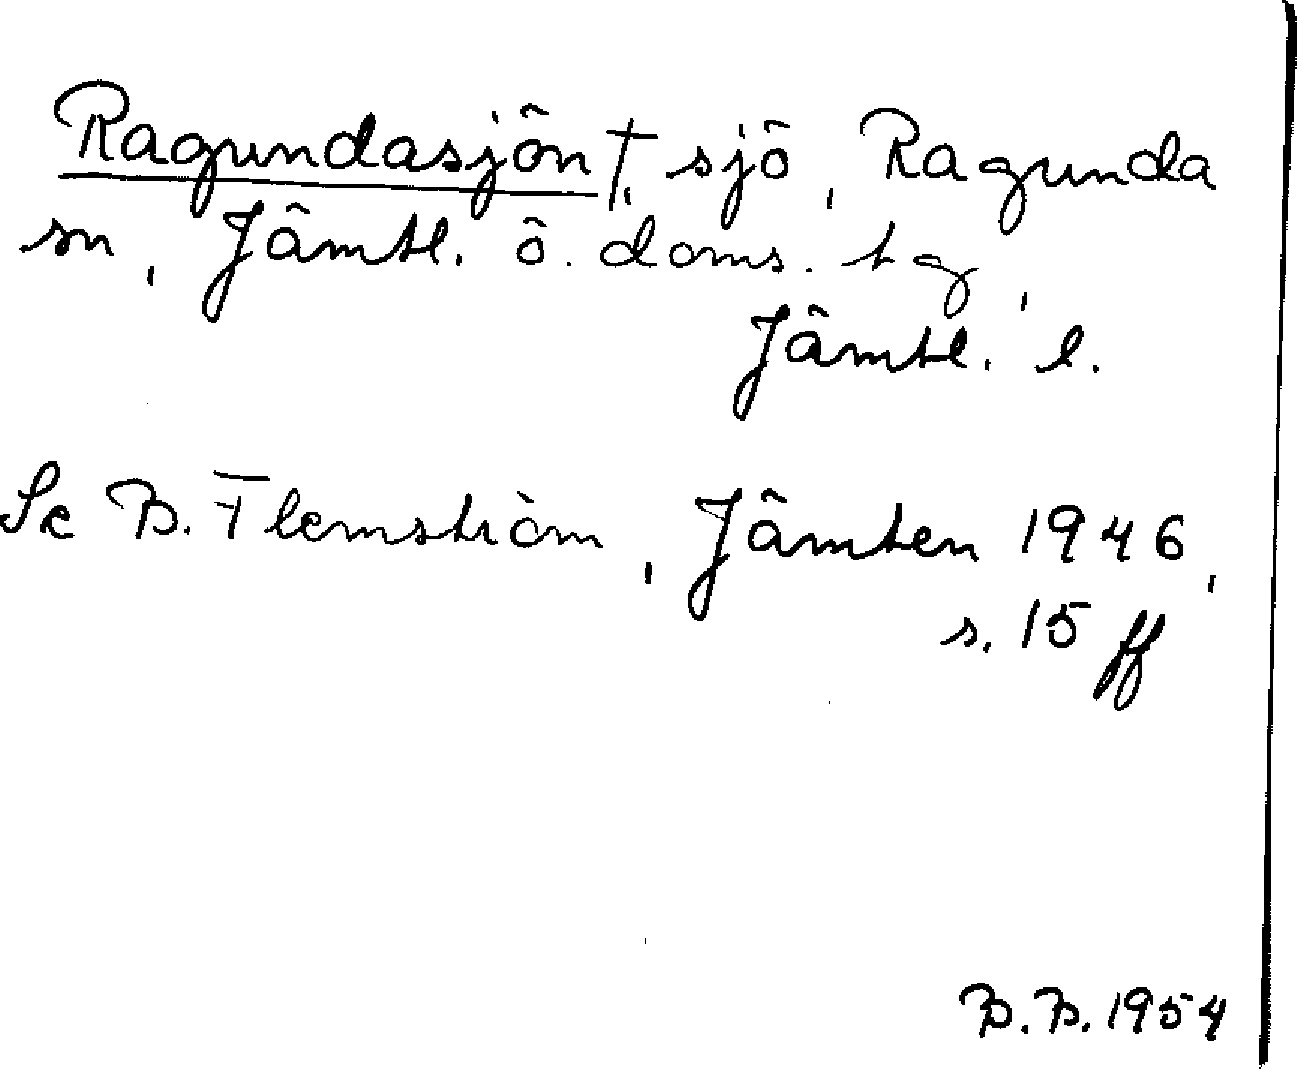 Ragundasjön †, sjö, Ragunda
sn, Jämtl. ö. doms. tg,
Jämtl. l.
Se B. Flemström, Jämten 1946,
s. 15 ff
B.B. 1954